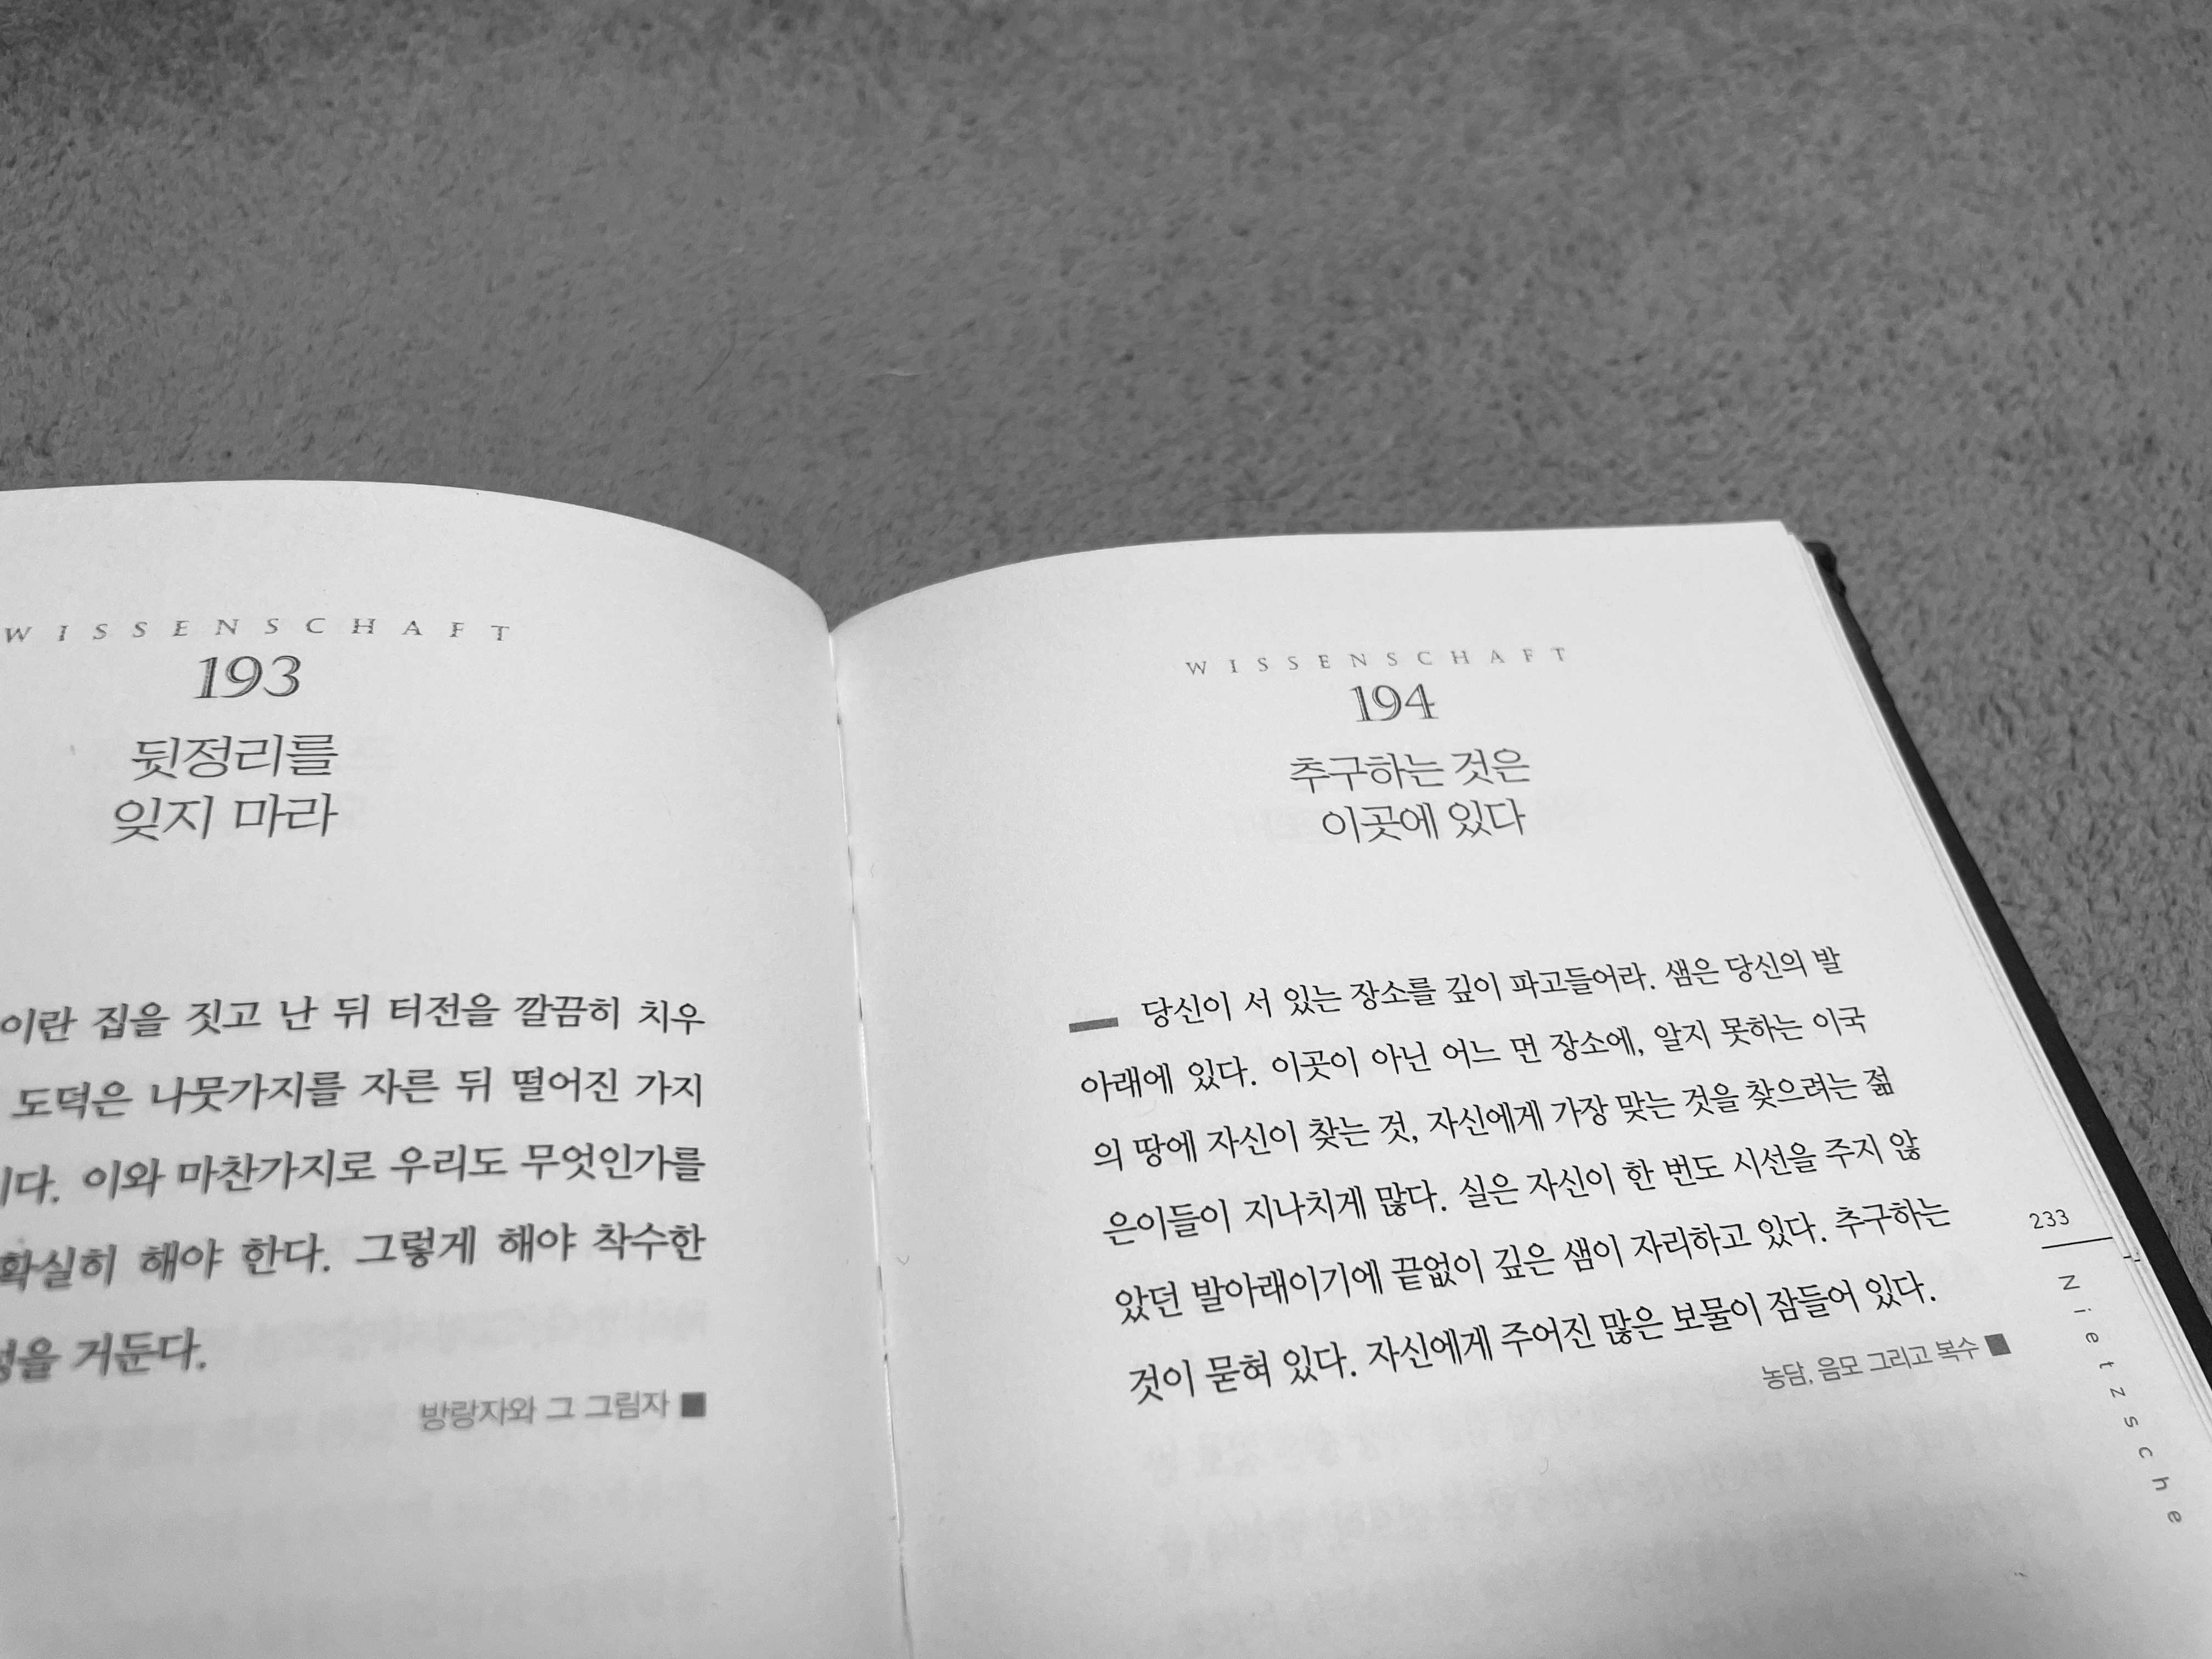 WISSENSCHAFT
193
뒷정리를
잊지 마라
집을 짓고 난 뒤 터전을 깔끔히 치우
도덕은 나뭇가지를 자른 뒤 떨어진 가지
이와 마찬가지로 우리도 무엇인가를
확실히 해야 한다. 그렇게 해야 착수한
거둔다.
방랑자와 그 그림자 ■
WISSENSCHAFT
194
추구하는 것은
이곳에 있다
당신이 서 있는 장소를 깊이 파고들어라. 샘은 당신의 발
아래에 있다. 이곳이 아닌 어느 먼 장소에, 알지 못하는 이국
의 땅에 자신이 찾는 것, 자신에게 가장 맞는 것을 찾으려는 젊
은이들이 지나치게 많다. 실은 자신이 한 번도 시선을 주지 않
았던 발아래이기에 끝없이 깊은 샘이 자리하고 있다. 추구하는
것이 묻혀 있다. 자신에게 주어진 많은 보물이 잠들어 있다.
농담, 음모 그리고 복수 ■
233
Nietzsche